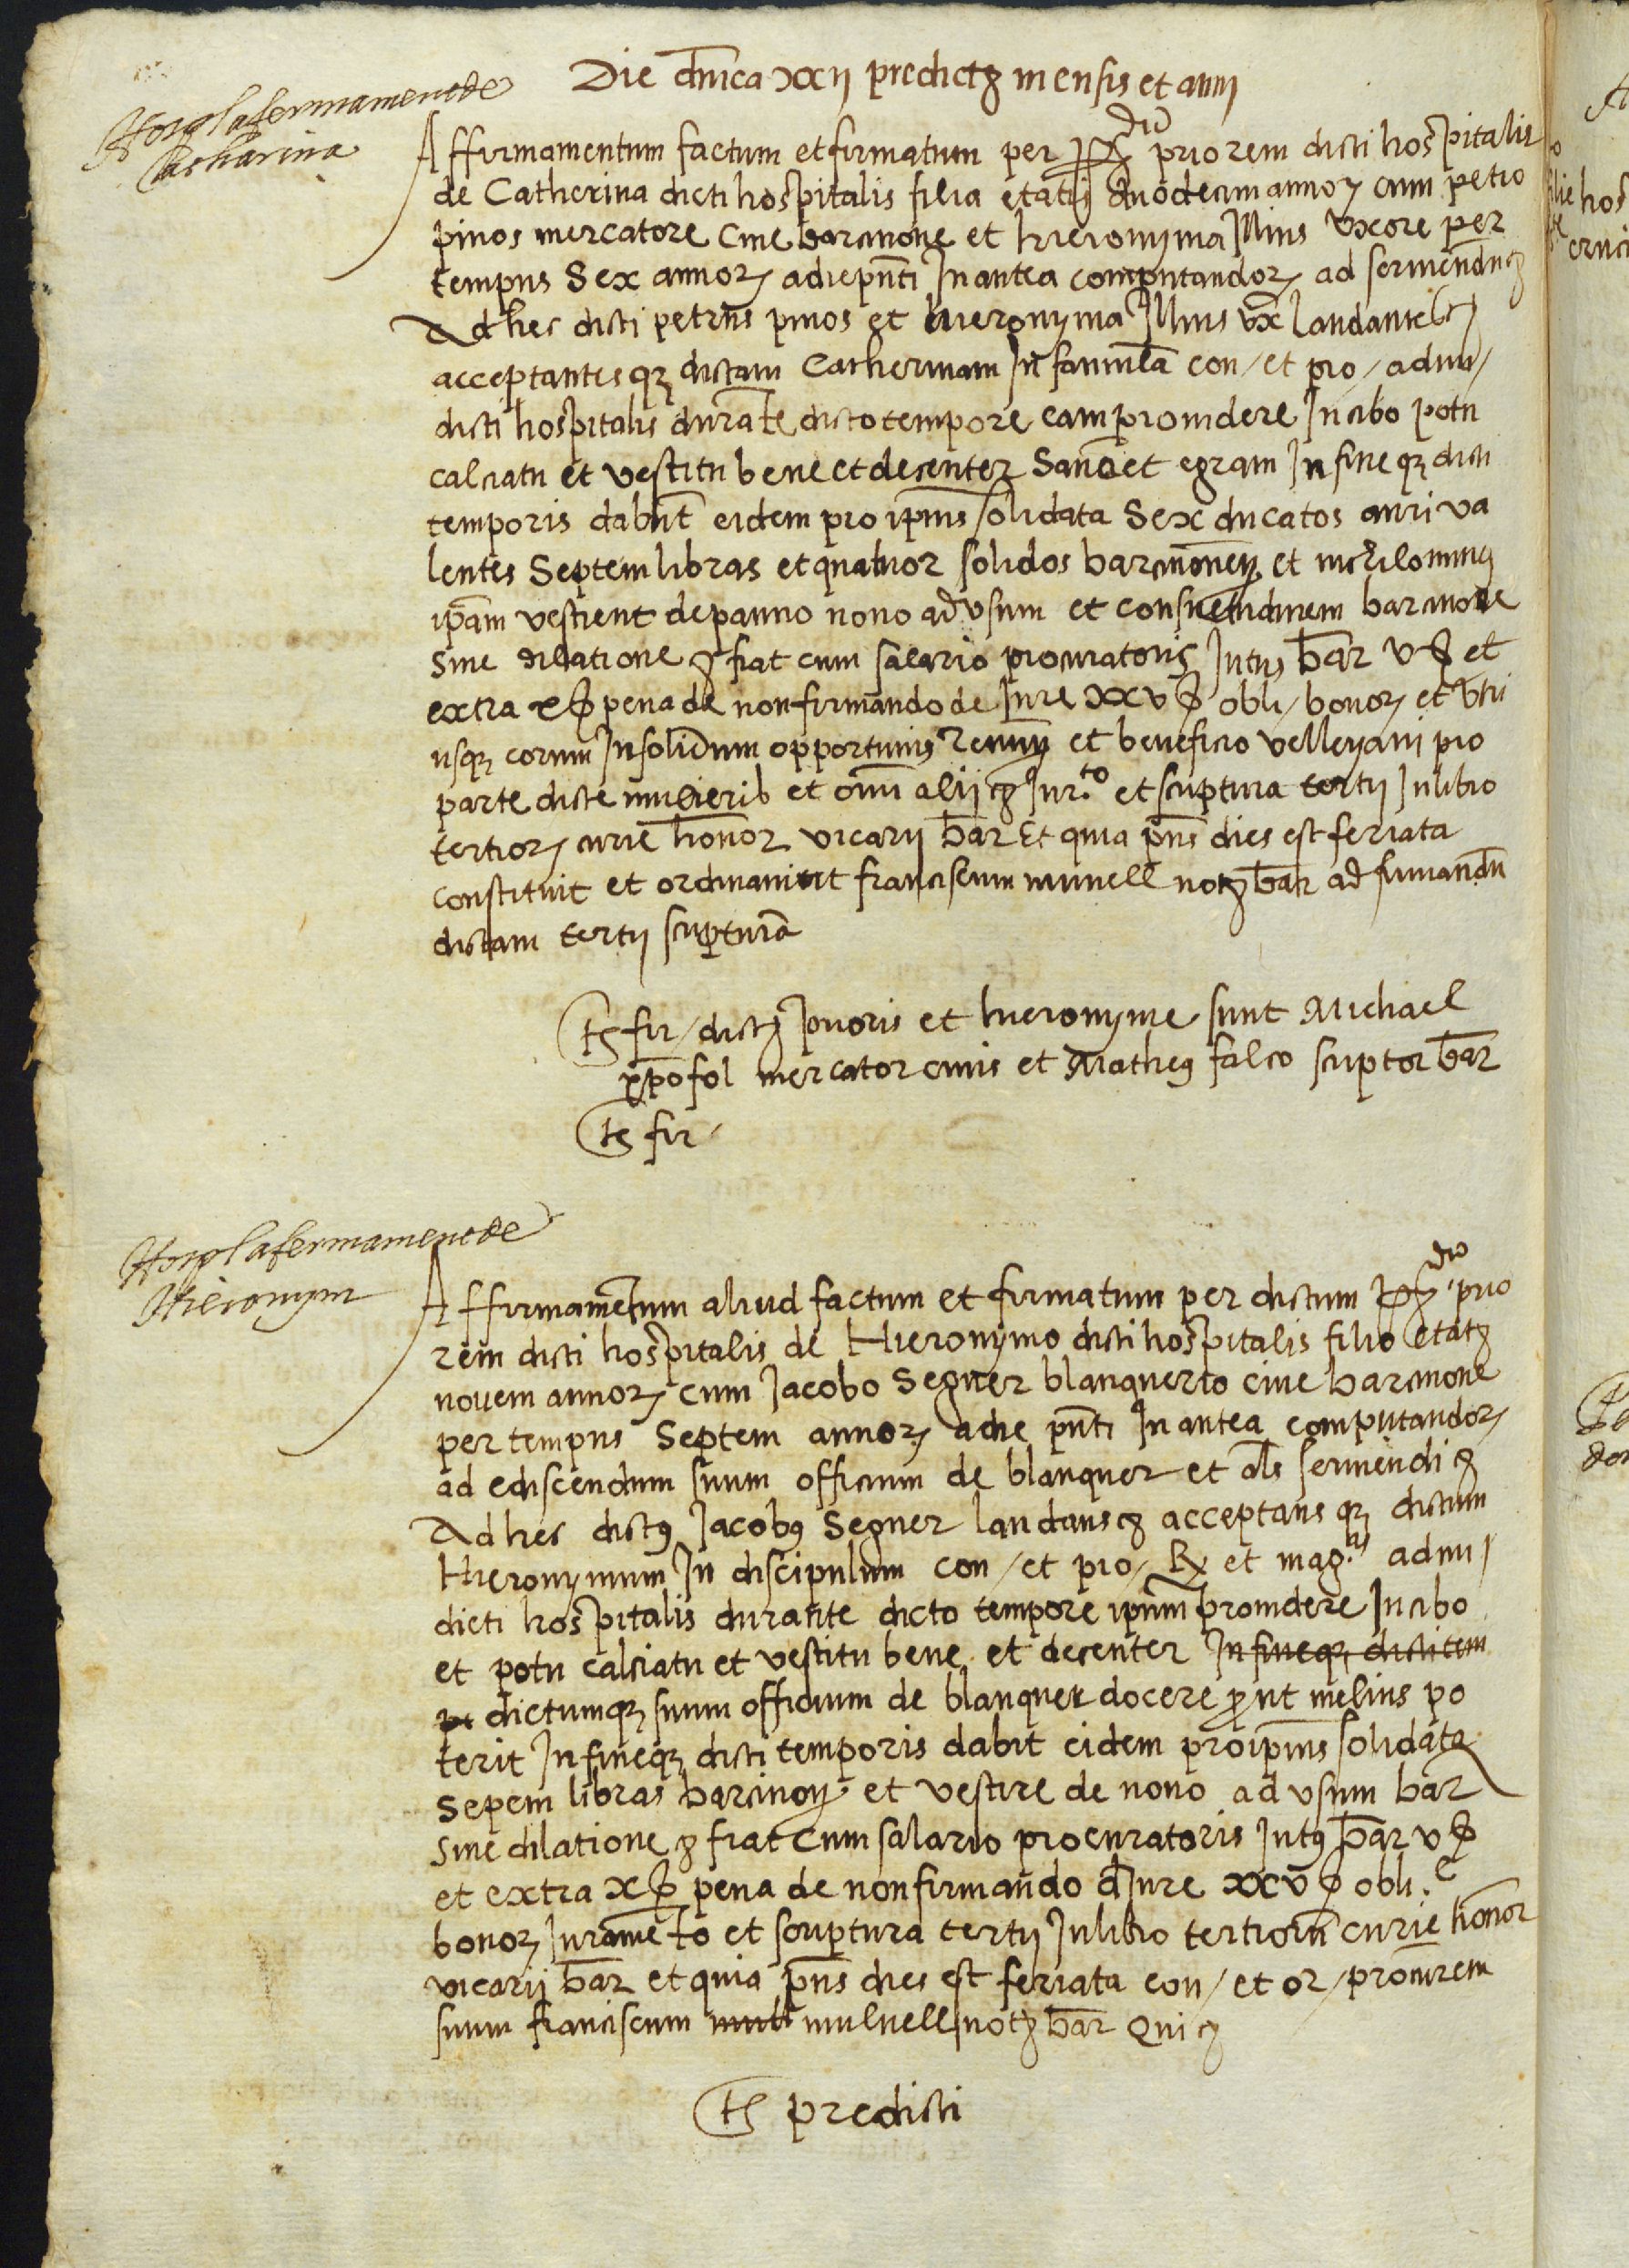 Die dnica xxij predictȝ mensis et anni
Hospl afermament de
Catharina
Affirmamentum factum et firmatum per priorem dicti hospitalis
de Catherina dicti hospitalis filia etatis duodecim annoꝝ cum petro
pinos mercatore cive barcinone et hieronyma illius uxore per
tempus Sex annoꝝ a die pnti In antea computandoꝝ ad serviendum
Ad hec dicti petrus pinos et hieronyma Illius ux laudantes
acceptantesqꝫ dictam Catherinam In famula con / et pro / admi /
dicti hospitalis durate dicto tempore eam providere In cibo potu
calciatu et vestitu bene et decenter Sana et egram In fineqꝫ dicti
temporis dabut eidem pro ipius solidata Sex ducatos auri va
lentes Septem libras et quatuor solidos barcinonen et nichilominus
ipam vestient de panno novo ad usum et consuetudinem barcinone
Sine dilatione ⁊ fiat cum salario procuratoris Intus bar v β et
extra x β pena de non firmando de Iure xxv β obli / bonoꝝ et utri
usqꝫ eorum In solidum opportunis Renun et beneficio velleyani pro
parte dicte mulieris et omni alij Jur.to et scriptura tertij In libro
tertioꝝ curie honor vicarij bar Et quia pns dies est feriata
constituit et ordinavit franciscum munell notȝ bar ad firmandu
dictam tertij scriptura
ts fir / dictȝ prioris et hieronyme sunt Michael
xpofol mercator civis et Matheus falco scriptor bar
ts fir /
Hospl afermament de
Hieronym
Affirmametum aliud factum et firmatum per dictum prio
rem dicti hospitalis de Hieronymo dicti hospitalis filio etatȝ
novem annoꝝ cum Jacobo Seguer blanquerio cive barcinone
per tempus Septem annoꝝ a die pnti In antea computandoꝝ
ad ediscendum suum officium de blanquer et als serviendi
Ad hec dictus Jacobus Seguer laudans acceptansqꝫ dictum
Hieronymum In discipulum con / et pro / et mag.cis admi /
dicti hospitalis durante dicto tempore ipum providere In cibo
et potu calciatu et vestitu bene et decenter In fineqꝫ dicti tem
dictumqꝫ suum officium de blanquer docere prout melius po
terit In fineqꝫ dicti temporis dabit eidem pro ipius solidata
Sepem libras barcinon et vestire de novo ad usum bar
Sine dilatione ⁊ fiat cum salario procuratoris Intus bar v β
et extra x β pena de non firmando d Iure xxv β obli.e
bonoꝝ Jurameto et scriptura tertij In libro tertioru curie honor
vicarij bar et quia pns dies est feriata con / et or / procurem
suum franciscum mulnell notȝ bar Qui
ts predicti